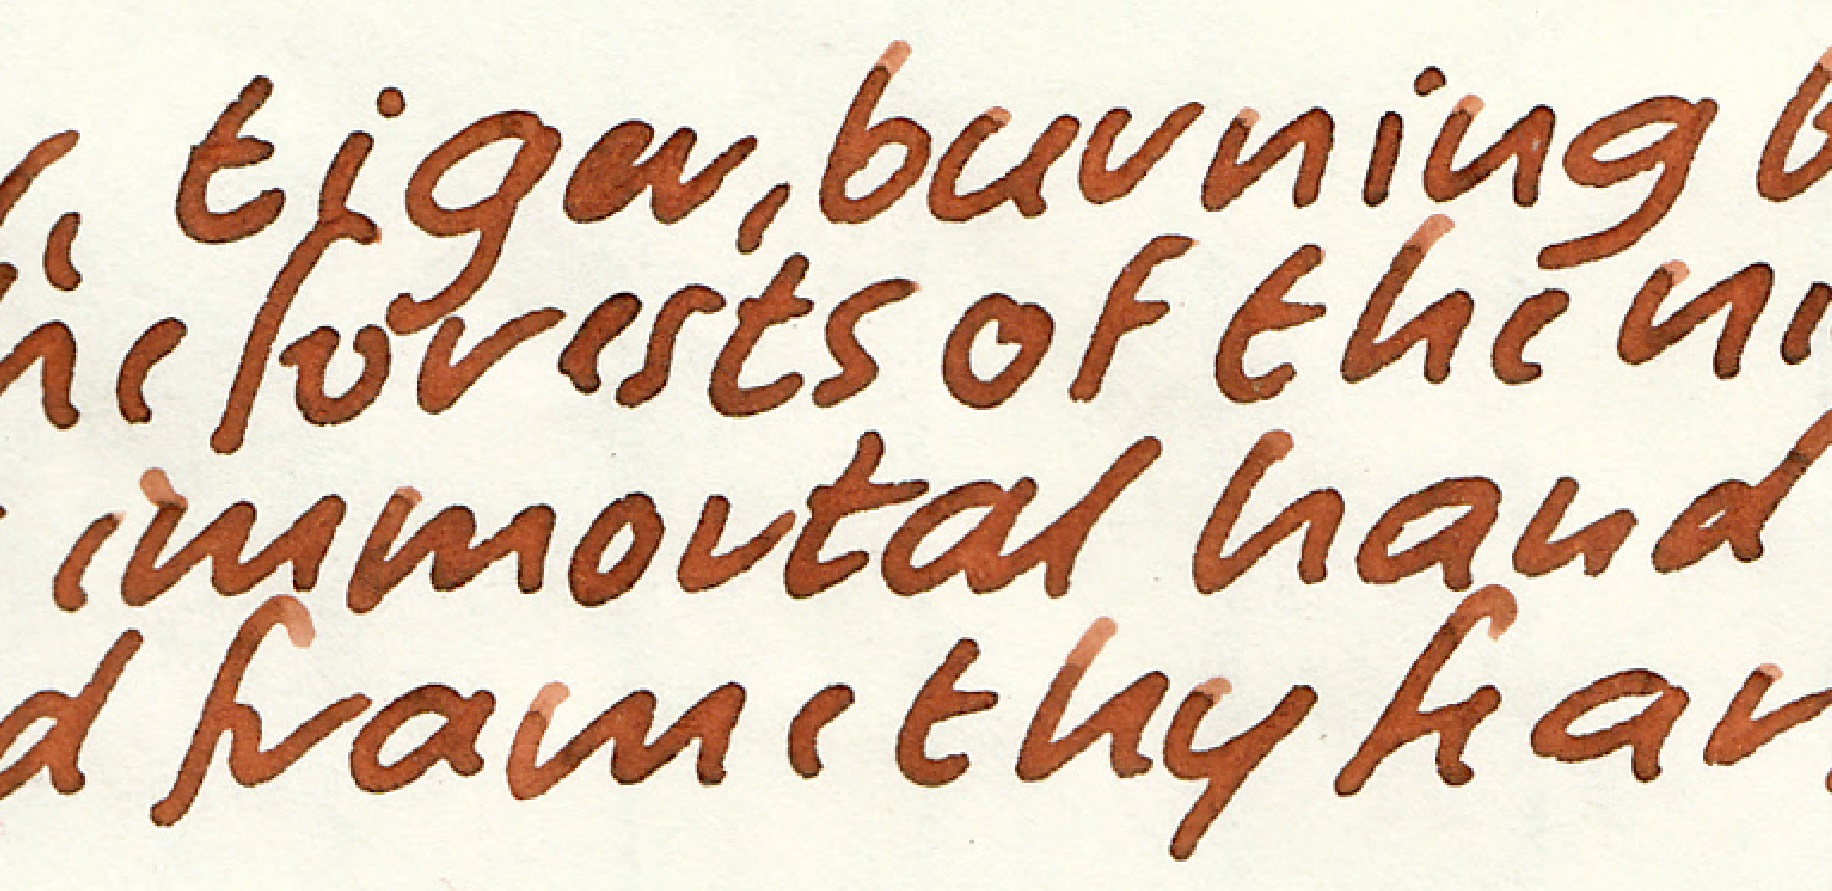 r, tiger, burning b
he forests of the ni
immortal hand
d frame thy fear